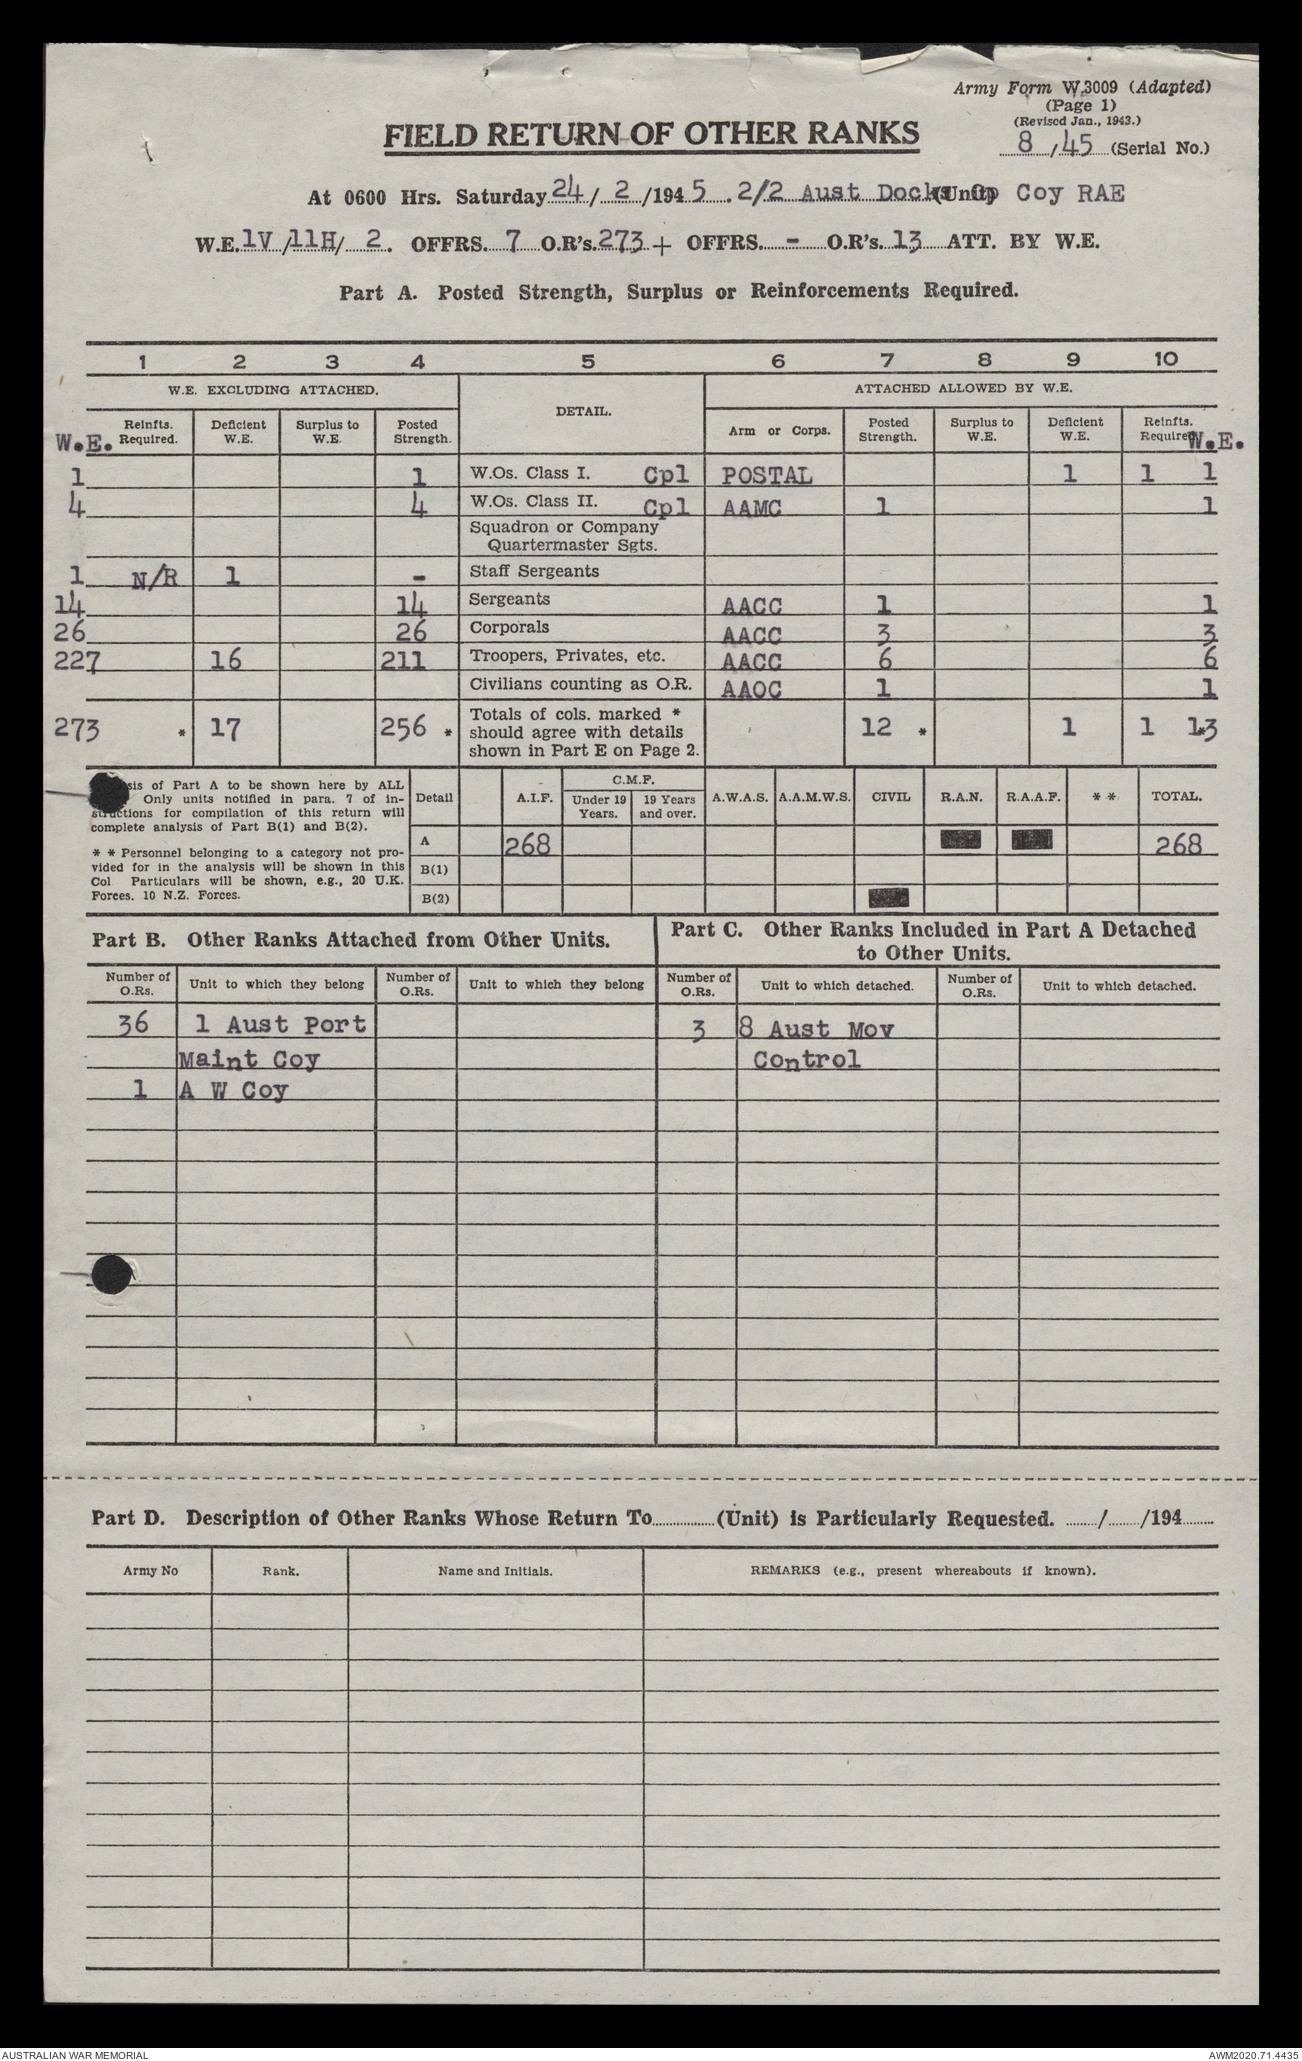 Army Form W.3009 (Adapted)
(Page 1)
(Revised Jan., 1943.)
8/45 (Serial No.)
FIELD RETURN OF OTHER RANKS
At 0600 Hrs. Saturday 24/2/1945. 2/2 Aust Docks Op Coy RAE (Unit)
W.E. 1V/11H/2. OFFRS. 7 O.R's. 273 + OFFRS. - O.R's. 13 ATT. BY W.E.
Part A. Posted Strength, Surplus or Reinforcements Required.
1 2 3 4 5 6 7 8 9 10
W.E. EXCLUDING ATTACHED. DETAIL. ATTACHED ALLOWED BY W.E.
W.E. Reinfts. Required. Deficient W.E. Surplus to W.E. Posted Strength. Arm or Corps. Posted Strength. Surplus to W.E. Deficient W.E. Reinfts. Required W.E.
1 1 W.Os. Class I. Cpl POSTAL 1 1 1
4 4 W.Os. Class II. Cpl AAMC 1 1
Squadron or Company
Quartermaster Sgts.
1 N/R 1 - Staff Sergeants
14 14 Sergeants AACC 1 1
26 26 Corporals AACC 3 3
227 16 211 Troopers, Privates, etc. AACC 6 6
Civilians counting as O.R. AAOC 1 1
273 * 17 256 * Totals of cols. marked * should agree with details shown in Part E on Page 2. 12 * 1 1 * 13
sis of Part A to be shown here by ALL
Only units notified in para. 7 of in-
structions for compilation of this return will
complete analysis of Part B(1) and B(2).
* * Personnel belonging to a category not pro-
vided for in the analysis will be shown in this
Col Particulars will be shown, e.g., 20 U.K.
Forces. 10 N.Z. Forces.
Detail A.I.F. C.M.F. Under 19 Years. 19 Years and over. A.W.A.S. A.A.M.W.S. CIVIL R.A.N. R.A.A.F. * * TOTAL.
A 268 268
B(1)
B(2)
Part B. Other Ranks Attached from Other Units.
Number of O.Rs. Unit to which they belong Number of O.Rs. Unit to which they belong
36 1 Aust Port
Maint Coy
1 A W Coy
Part C. Other Ranks Included in Part A Detached
to Other Units.
Number of O.Rs. Unit to which detached. Number of O.Rs. Unit to which detached.
3 8 Aust Mov
Control
Part D. Description of Other Ranks Whose Return To (Unit) is Particularly Requested. / /194
Army No Rank. Name and Initials. REMARKS (e.g., present whereabouts if known).
AUSTRALIAN WAR MEMORIAL AWM2020.71.4435